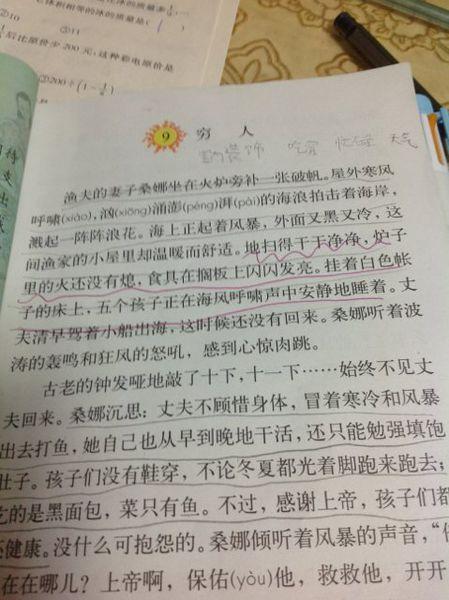 ②10
③11
后比原价少200元,这种彩电原价是
②200÷(1-
9 穷人
渔夫的妻子桑娜坐在火炉旁补一张破帆。屋外寒风
呼啸(xiào),汹(xiōng)涌澎(péng)湃(pài)的海浪拍击着海岸,
溅起一阵阵浪花。海上正起着风暴,外面又黑又冷,这
间渔家的小屋里却温暖而舒适。地扫得干干净净,炉子
里的火还没有熄,食具在搁板上闪闪发亮。挂着白色帐
子的床上,五个孩子正在海风呼啸声中安静地睡着。丈
夫清早驾着小船出海,这时候还没有回来。桑娜听着波
涛的轰鸣和狂风的怒吼,感到心惊肉跳。
古老的钟发哑地敲了十下,十一下……始终不见丈
夫回来。桑娜沉思:丈夫不顾惜身体,冒着寒冷和风暴
出去打鱼,她自己也从早到晚地干活,还只能勉强填饱
肚子。孩子们没有鞋穿,不论冬夏都光着脚跑来跑去;
吃的是黑面包,菜只有鱼。不过,感谢上帝,孩子们都
还健康。没什么可抱怨的。桑娜倾听着风暴的声音,“
在在哪儿?上帝啊,保佑(yòu)他,救救他,开开